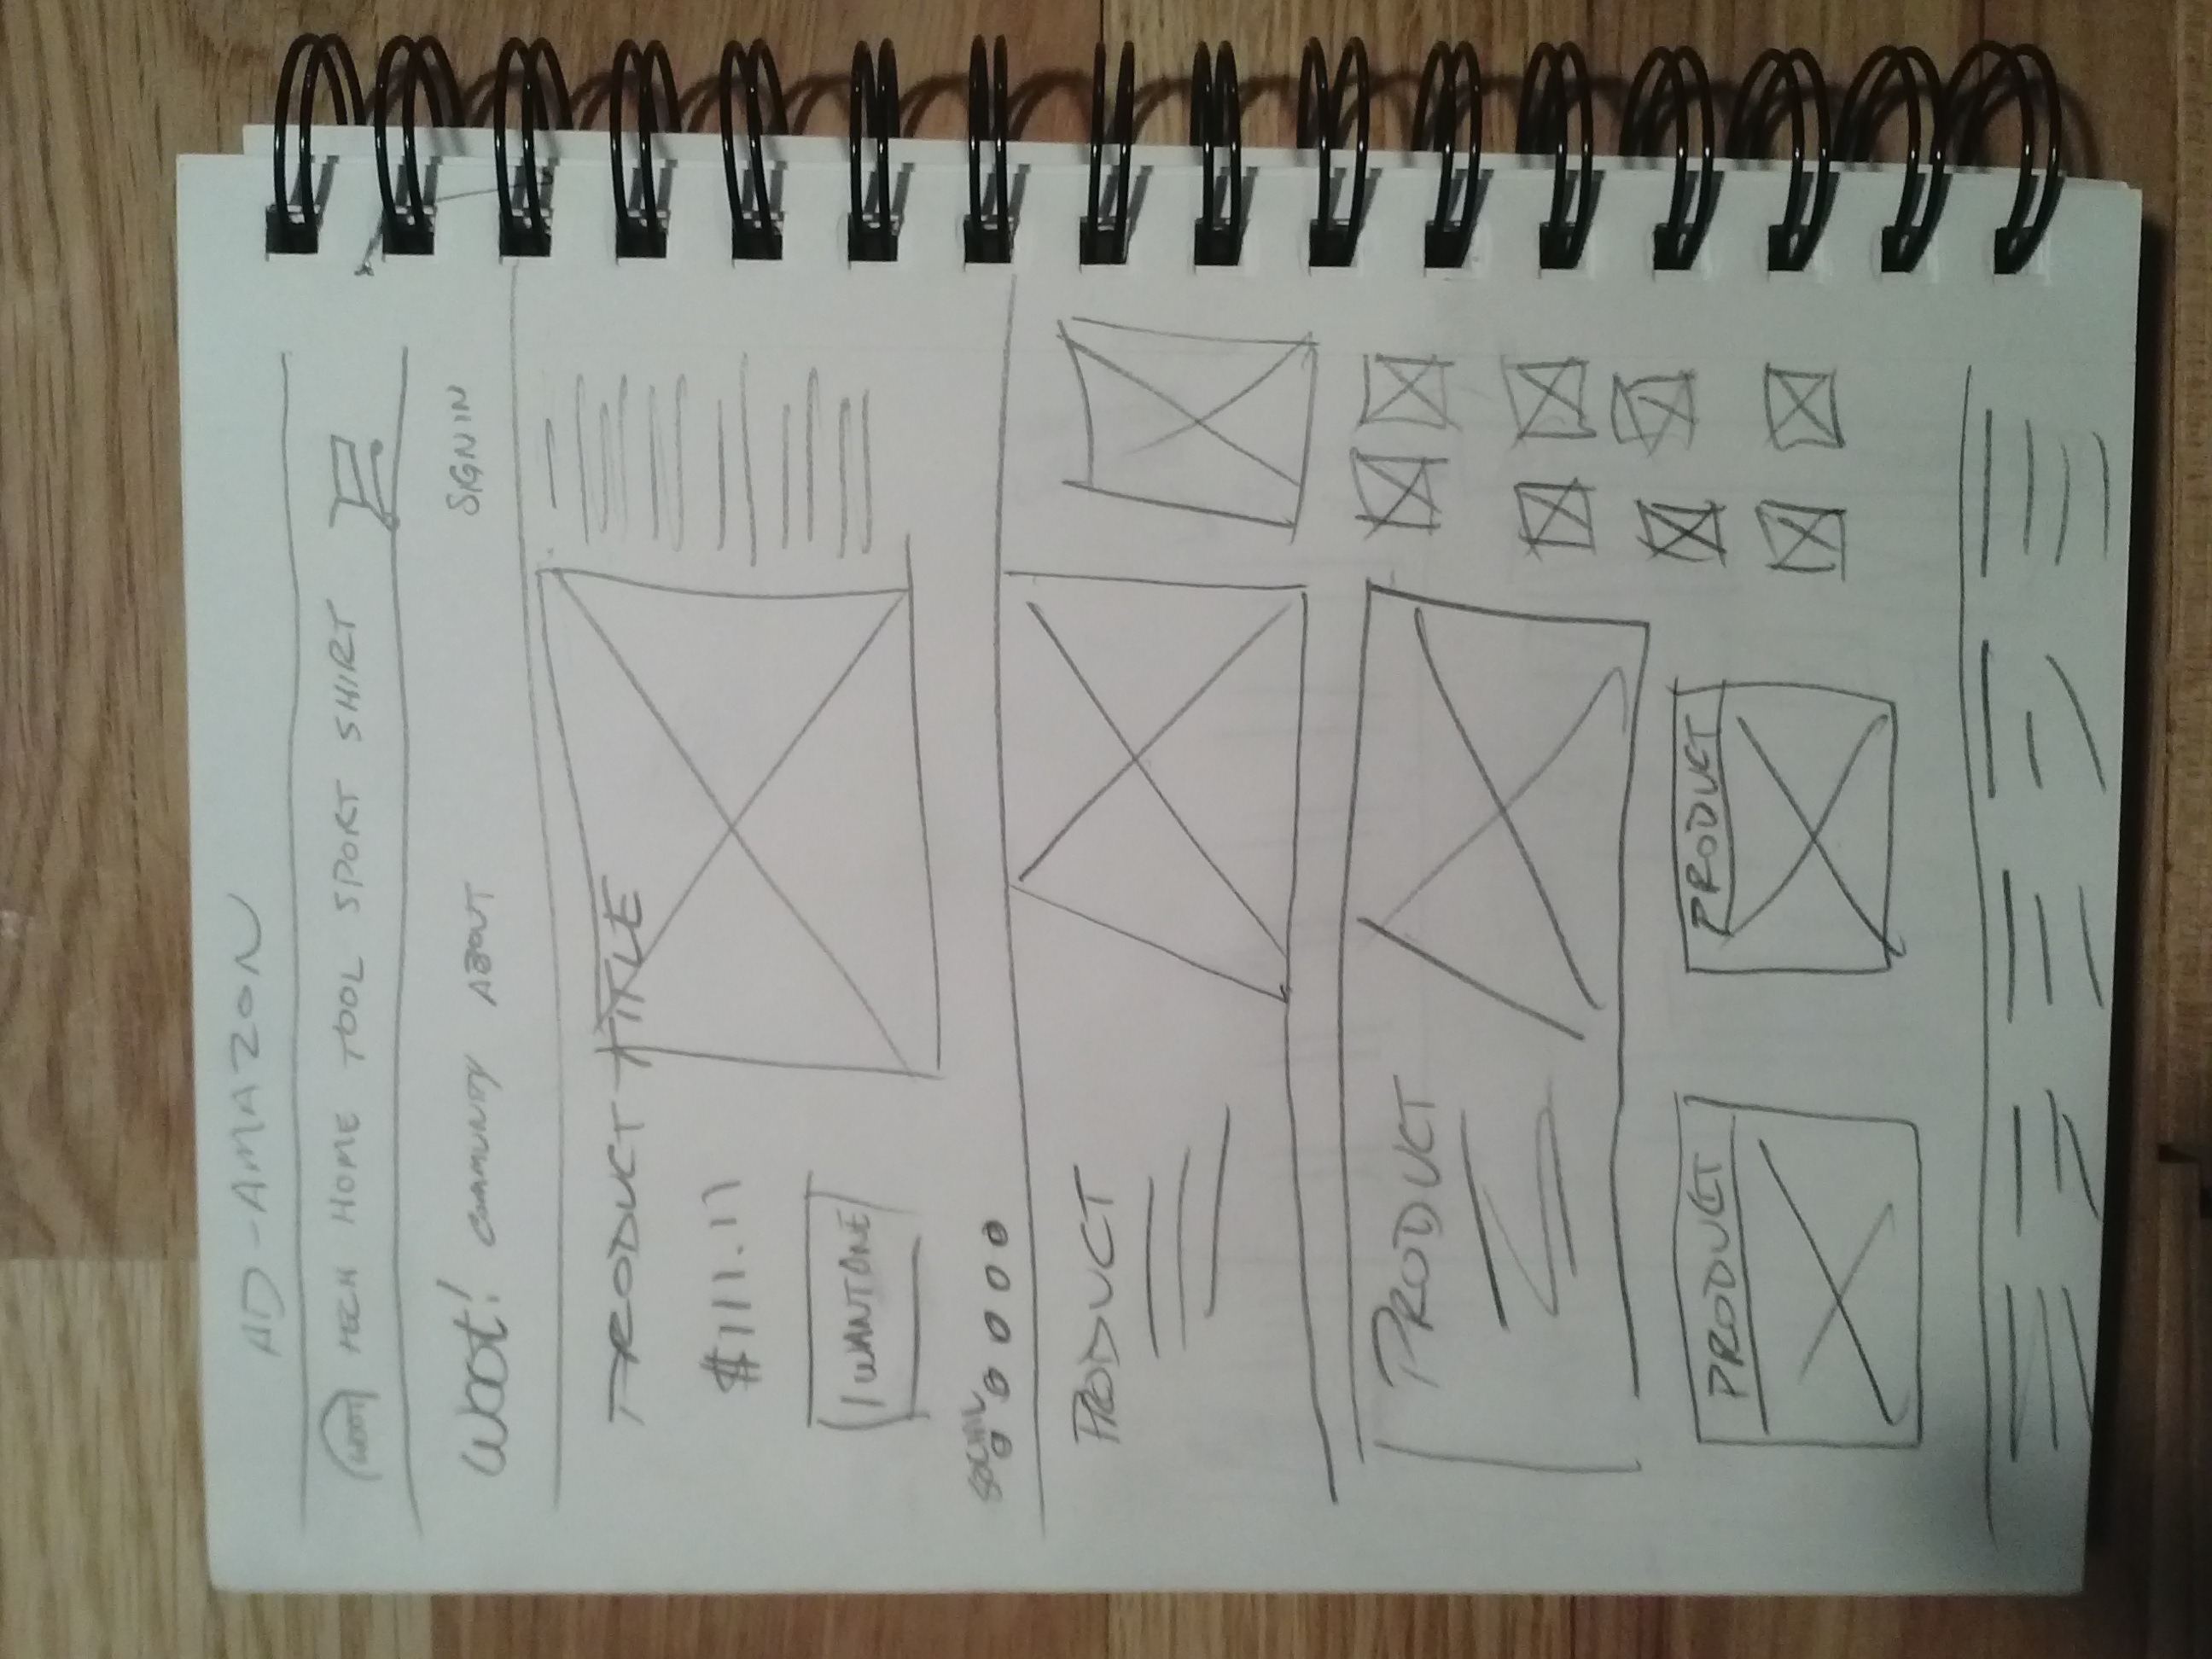 AD - AMAZON
woot TECH HOME TOOL SPORT SHIRT
woot! COMMUNITY ABOUT SIGN IN
PRODUCT TITLE
$111.11
I WANT ONE
SOCIAL
PRODUCT
PRODUCT
PRODUCT PRODUCT